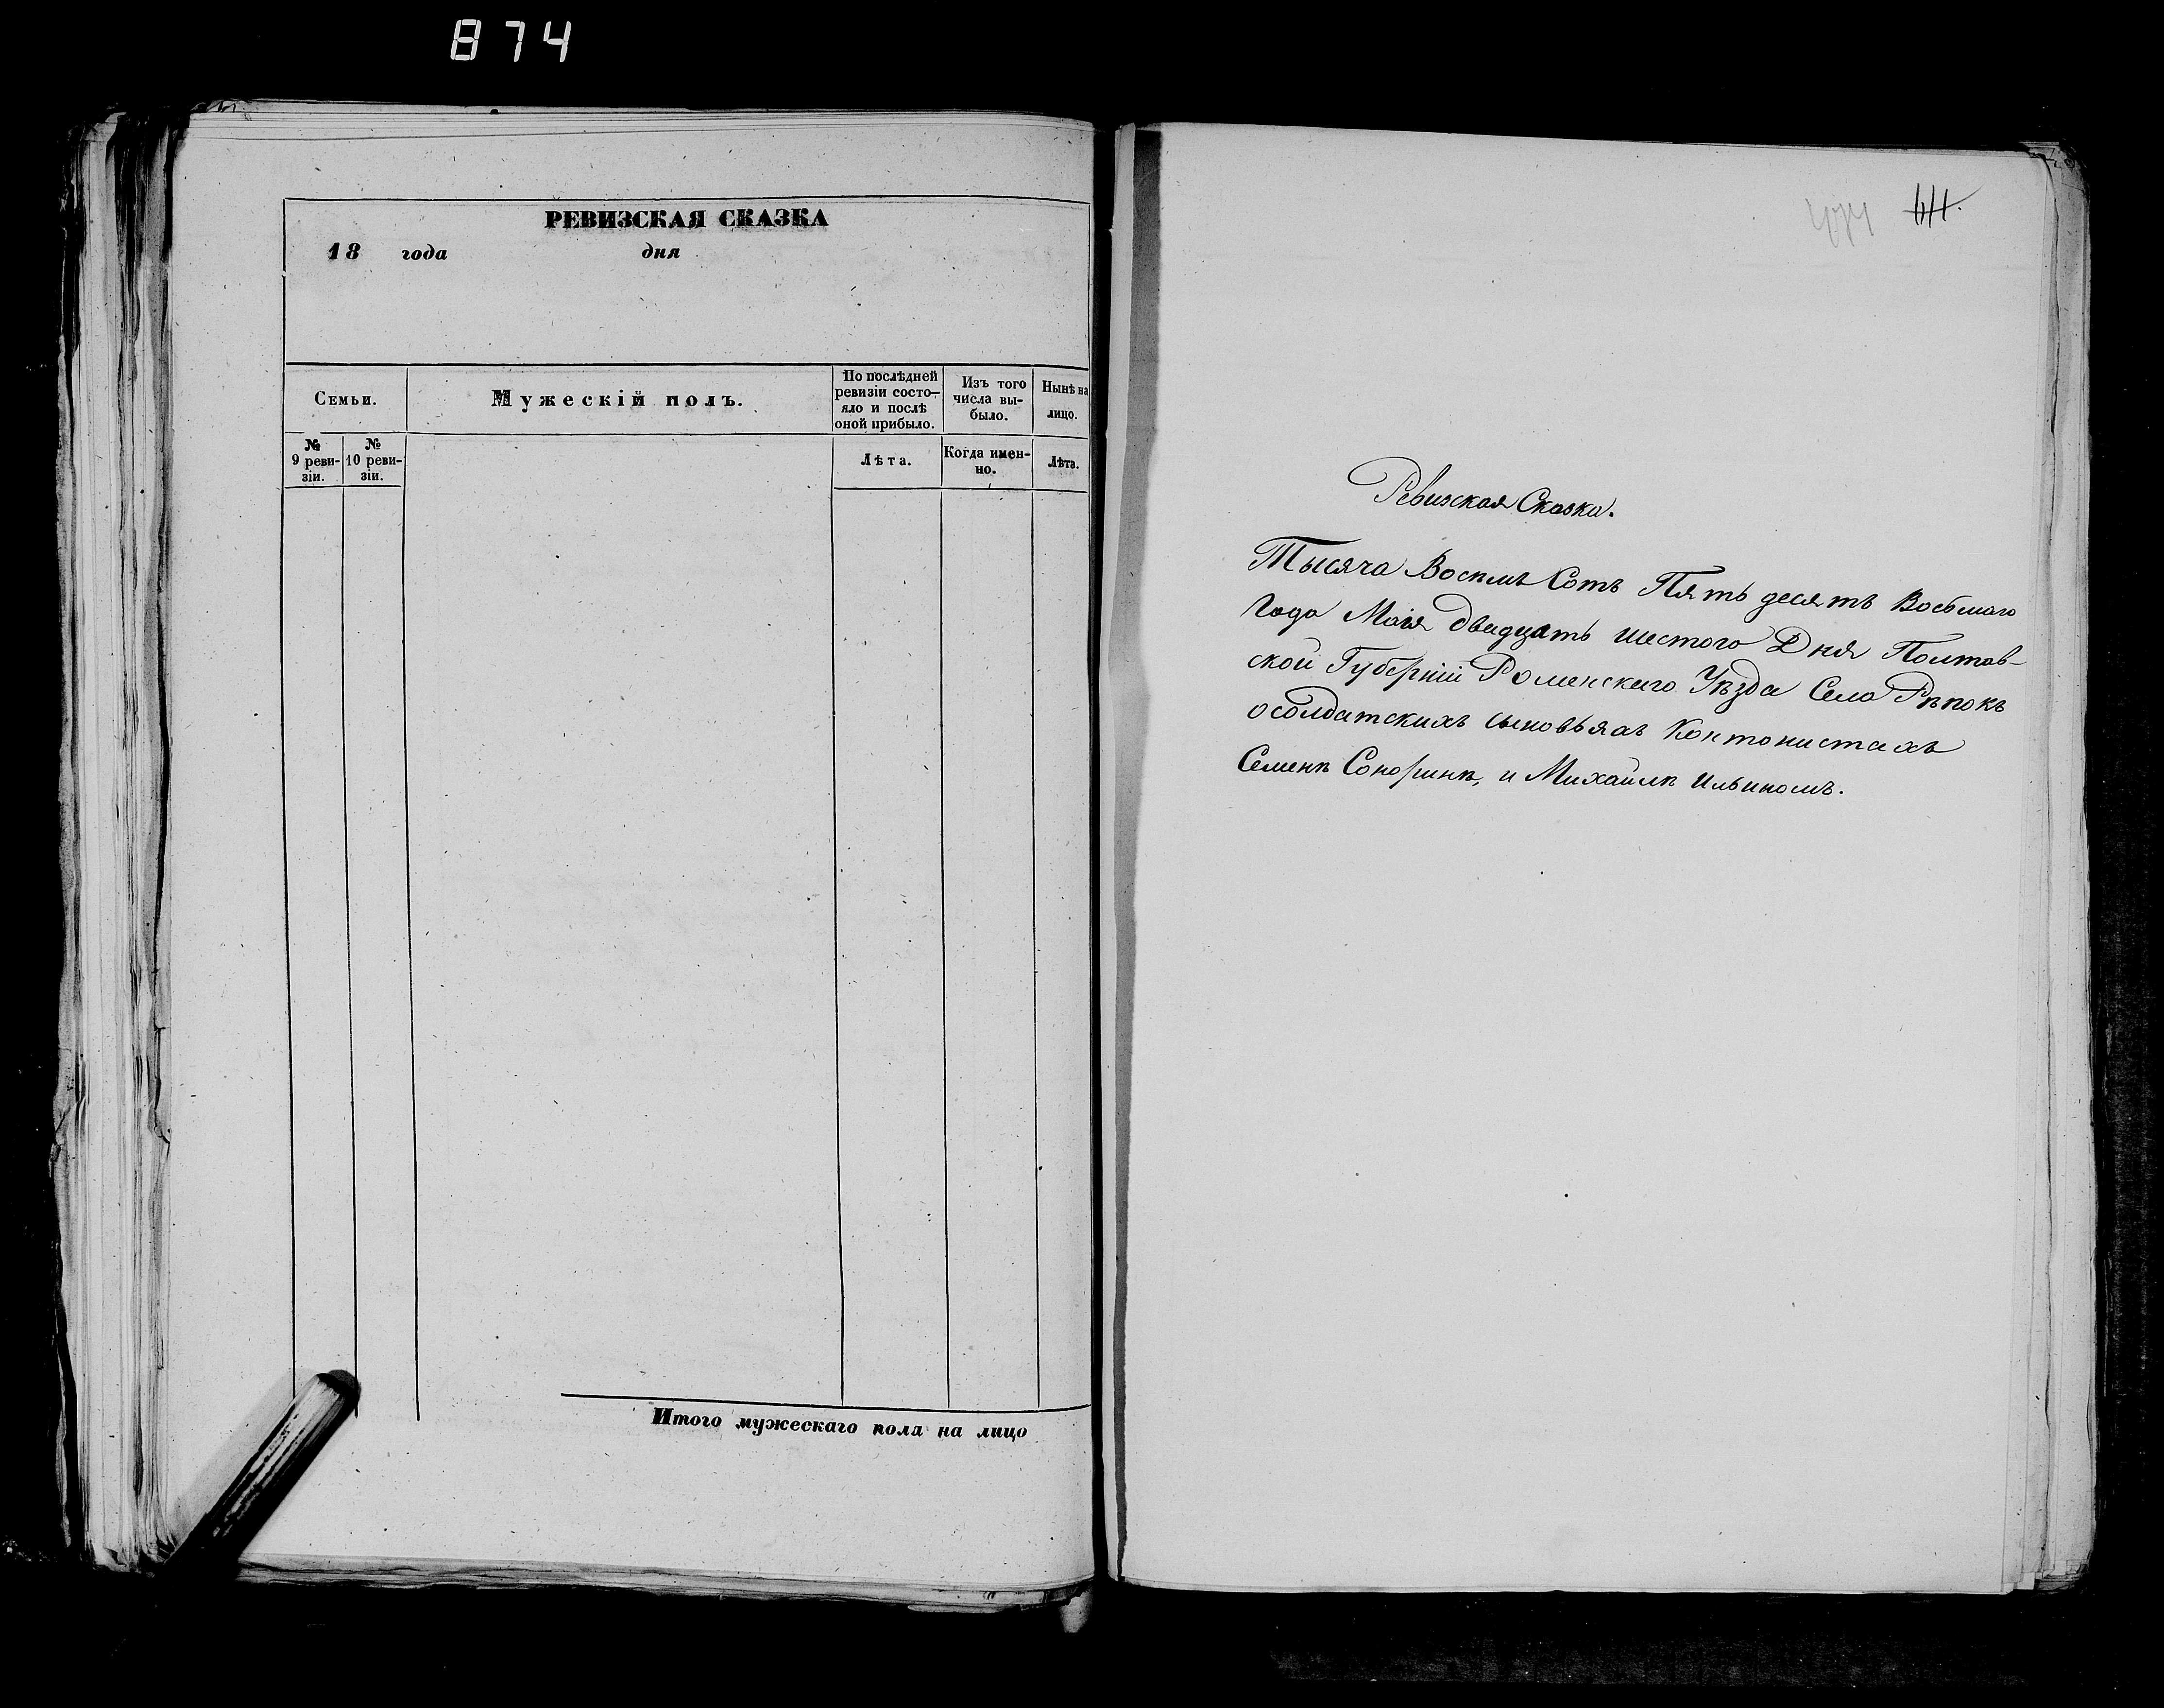 874
РЕВИЗСКАЯ СКАЗКА
18 года дня
Семьи.
Мужескій полъ.
По послѣдней
ревизіи состо-
яло и послѣ
оной прибыло.
Изъ того
числа вы-
было.
Нынѣ на
лицо.
№
9 реви-
зіи.
№
10 реви-
зіи.
Лѣта.
Когда имен-
но.
Лѣта.
Итого мужескаго пола на лицо
Ревизкая Сказка.
Тысяча Воспмь Сотъ Пять десятъ Восбмаго
Года Маія двадцать шестого Дня Полтав-
ской Губерніи Роменскаго Уѣзда Села Рѣпокъ
о солдатскихъ сыновьяхъ Контонистахъ
Семенѣ и Михайлѣ Ильиномъ.